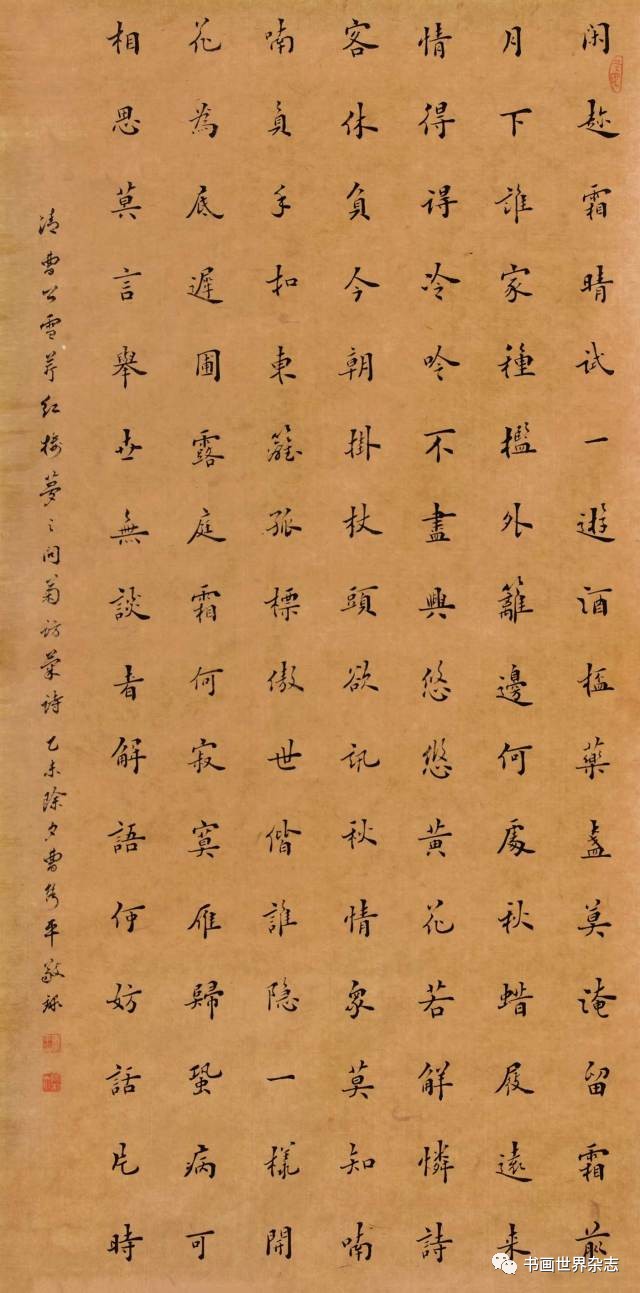 闲趂霜晴試一遊酒桮藥盞莫淹留霜前
月下誰家種檻外籬邊何處秋蜡屐遠来
情得得冷吟不盡興悠悠黃花若解憐詩
客休負今朝掛杖頭欲訊秋情衆莫知喃
喃負手扣東籬孤標傲世偕誰隐一樣開
花為底遲圃露庭霜何寂寞雁歸蛩病可
相思莫言舉世無談者解語何妨話片時
清曹公雪芹红樓夢之问菊訪菊诗 乙未除夕曹平敬録
书画世界杂志